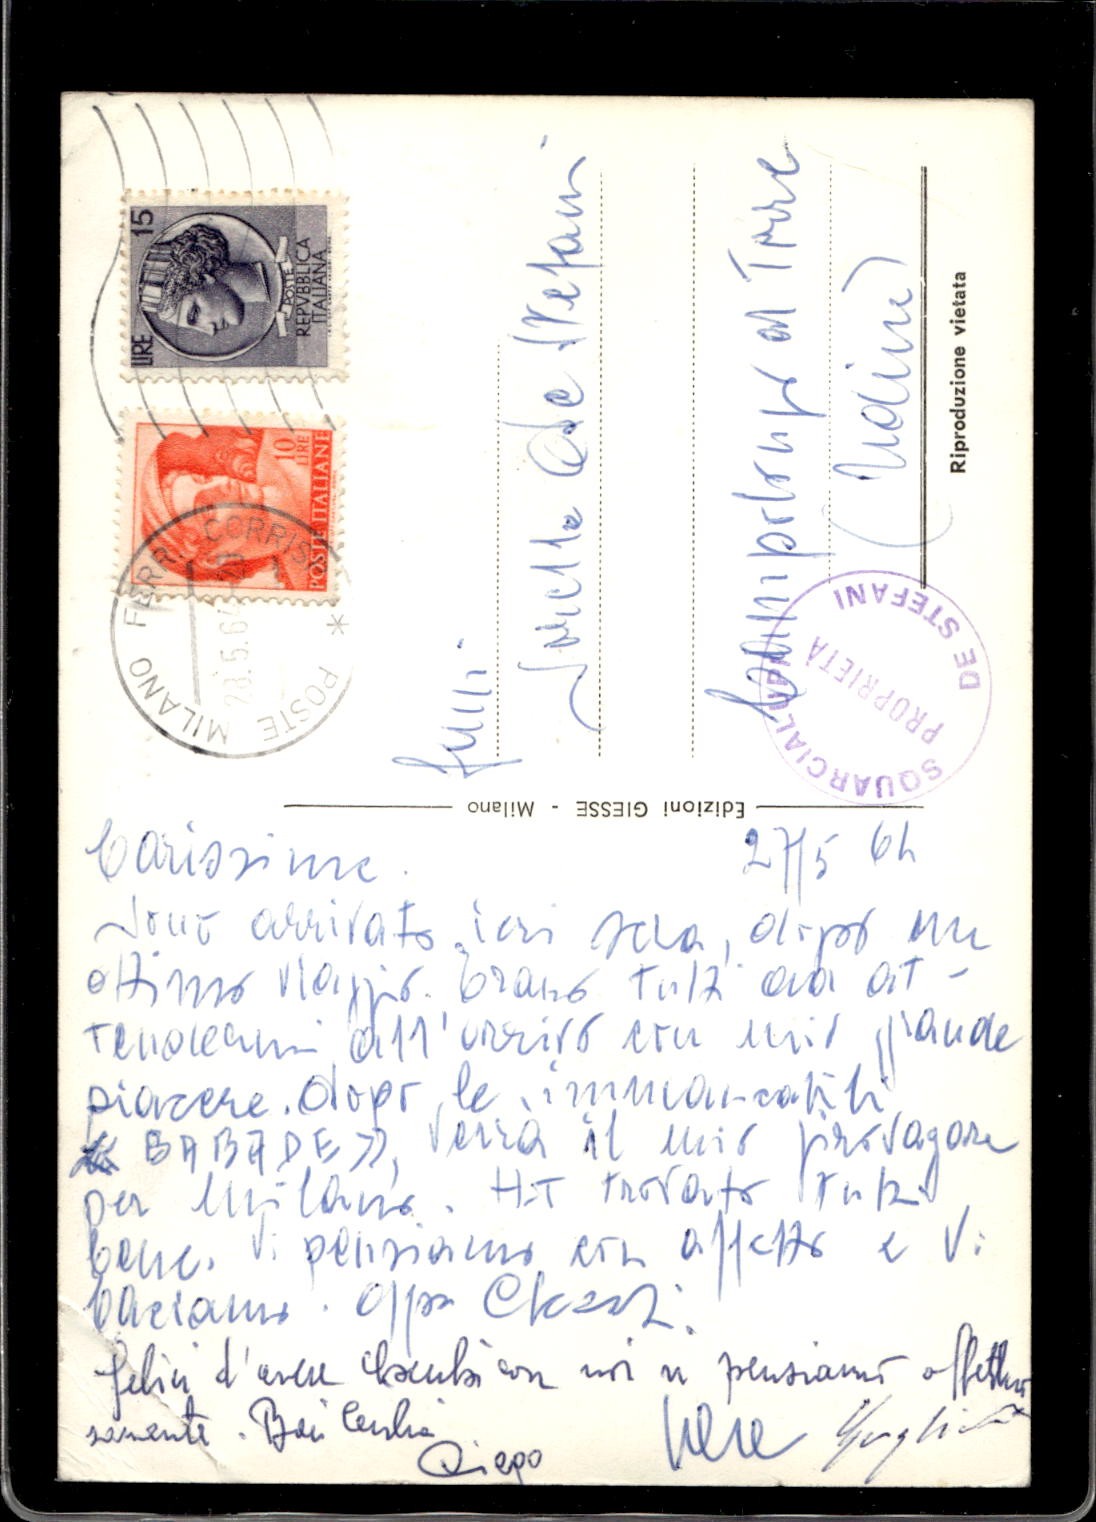 LIRE 15
POSTE
REPVBBLICA
ITALIANA
10
LIRE
POSTE ITALIANE
MILANO FERR. CORRISP
POSTE
28.5.64
Sorelle De Stefani
Campolongo al Torre
(Udine)
Riproduzione vietata
DE STEFANI
PROPRIETÀ
Edizioni GIESSE - Milano
27/5 64
Carissime.
Sono arrivato ieri sera, dopo un
ottimo viaggio. Erano tutti ad at-
tendermi all'arrivo con mio grande
piacere. Dopo le immancabili
« BABADE », verrà il mio
per Milano. Ho trovato tutti
bene. Vi pensiamo con affetto e Vi
baciamo.
Felici d'avere con noi vi pensiamo affettuo
samente. Baci Cecilia
Diego